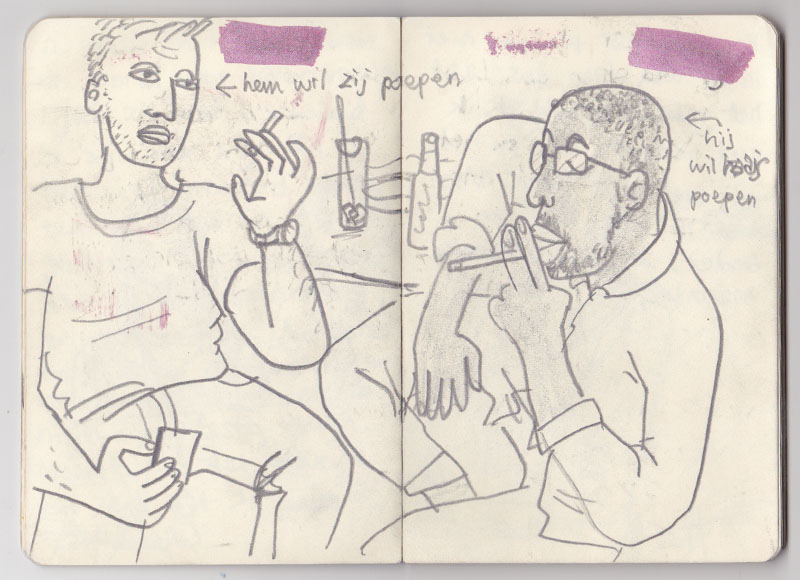 hem wil zij poepen
hij
wil
poepen